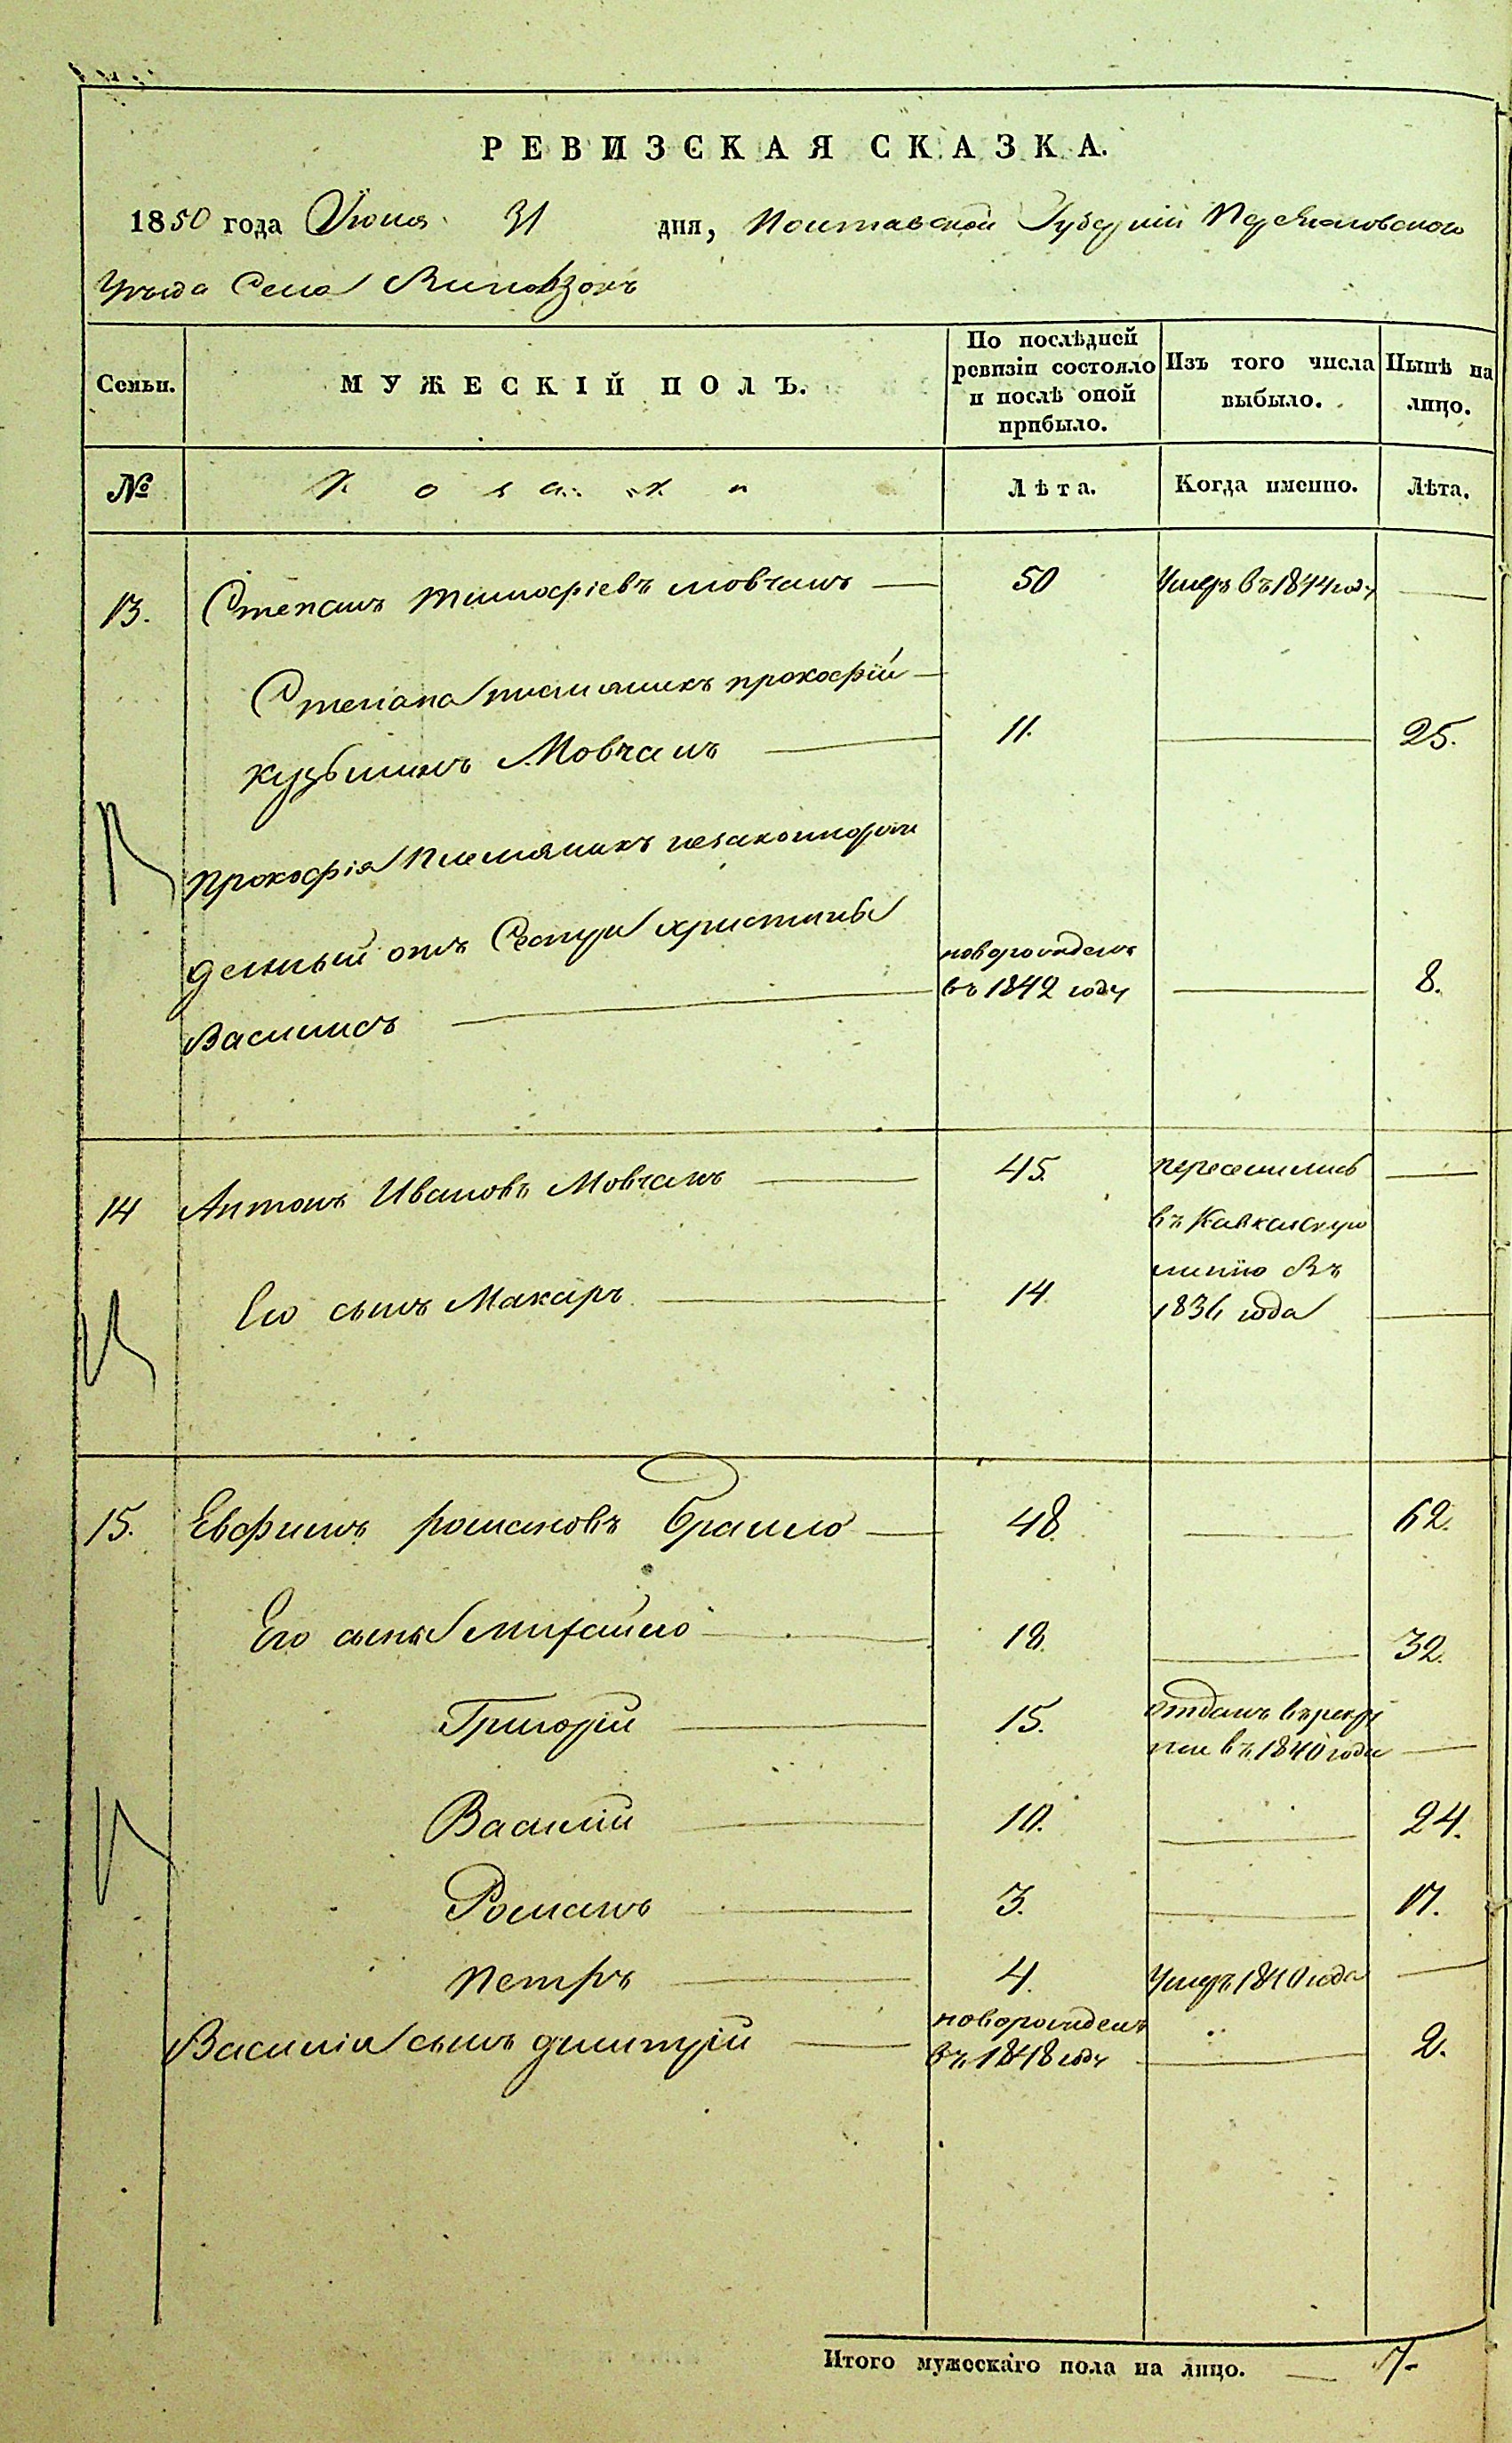 РЕВИЗСКАЯ СКАЗКА.
1850 года Июня 31 дня, Полтавской Губерніи Переяславского
Уезда Села
Семьи. МУЖЕСКІЙ ПОЛЪ. По послѣдней ревизіи состояло и послѣ оной прибыло. Изъ того числа выбыло. Нынѣ на лицо.
№ Козаки Лѣта. Когда именно. Лѣта.
13. Степанъ Тимофіевъ мовчанъ — 50 Умеръ въ 1844 году —
Степана племяникъ прокофій —
кузьминъ Мовчанъ — 11. — 25.
Прокофія Племяникъ незаконнорож
денный отъ Сестры христины новорожденъ
Василій — въ 1842 году — 8.
14 Антонъ Ивановъ Мовчанъ — 45. переселились —
въ Кавказскую
Его сынъ Макаръ — 14 линію Въ
1836 года —
15. Евфимъ романовъ Браило — 48 — 62.
Его сыны михайло — 18. — 32.
Григорій — 15. отданъ въ рекру
ты въ 1840 годе —
Василій — 10. — 24.
Романъ — 3. — 17.
Петръ — 4. Умеръ 1840 года —
Василія сынъ дмитрій — новорожденъ
въ 1848 году — 2.
Итого мужескаго пола на лицо. — 7.